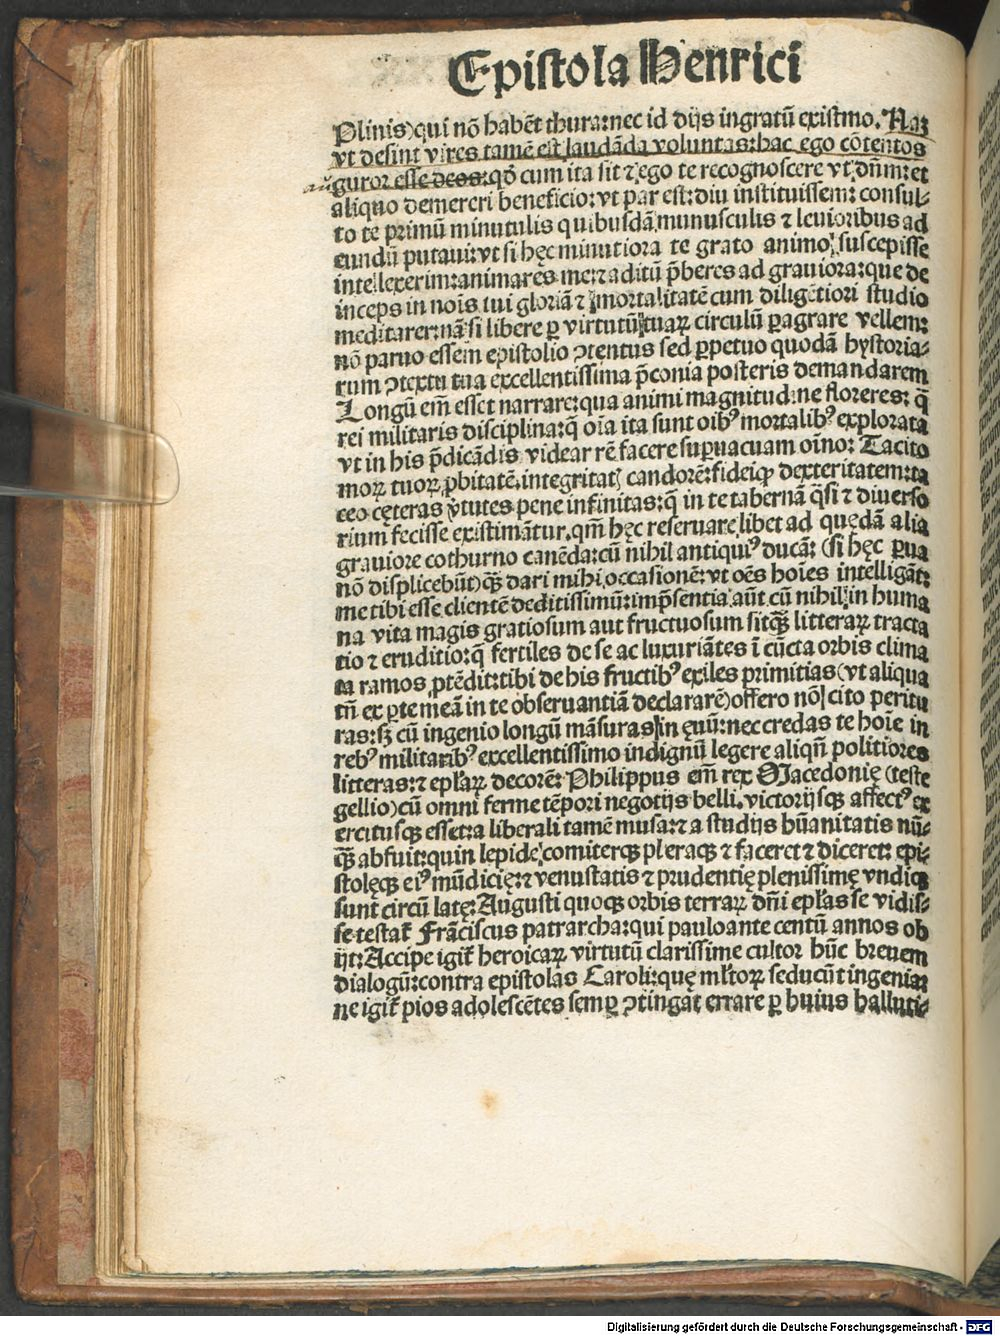 Epistola Henrici
Plinis) qui nō habēt thura: nec id dijs ingratū existīmo. Naꝫ
vt desint vires tamē est laudāda voluntas: hac ego cōtentos
auguror esse deos: qđ cum ita sit ⁊ ego te recognoscere vt dn̄m: et
aliquo demereri beneficio: vt par est: diu instituissem: consul-
to te primū minutulis quibusdā munusculis ⁊ leuioribus ad
eundū putaui: vt si hęc minutiora te grato animo suscepisse
intellexerim: animares me: ⁊ aditū p̄beres ad grauiora: que de
inceps in nois tui gloriā ⁊ īmortalitatē cum diligētiori studio
meditarer: nā si libere ꝑ virtutū tuaꝝ circulū ꝑagrare vellem:
nō paruo essem epistolio ↄtentus sed ꝑpetuo quodā hystoria-
rum ↄtextu tua excellentissima p̄conia posteris demandarem
Longū em̄ esset narrare: qua animi magnitudine floreres: q̄
rei militaris disciplina: q̄ oīa ita sunt oibꝰ mortalibꝰ explorata
vt in his p̄dicādis videar rē facere suꝑuacuam oīno: Tacito
moꝝ tuoꝝ ꝓbitatē, integritatꝭ candorē: fideiqꝫ dexteritatem: ta
ceo cęteras v̄tutes pene infinitas: q̄ in te tabernā q̄si ⁊ diuerso
rium fecisse existimātur. qm̄ hęc reseruare libet ad quędā alia
grauiore cothurno canēda: cū nihil antiquiꝰ ducā: (si hęc ꝑua
nō displicebūt) qꝫ̄ dari mihi occasionē: vt oēs hoīes intelligāt:
me tibi esse clientē deditissimū: imp̄sentia aūt cū nihil in huma
na vita magis gratiosum aut fructuosum sit qꝫ̄ litteraꝝ tracta
tio ⁊ eruditio: q̄ fertiles de se ac luxuriātes ī cūcta orbis clima
ta ramos ꝓtēdit: tibi de his fructibꝰ exiles primitias (vt aliqua
tn̄ ex ꝑte meā in te obseruantiā declararē) offero nō cito peritu
ras: sꝫ cū ingenio longū māsuras in ęuū: nec credas te hoīe in
rebꝰ militaribꝰ excellentissimo indignū legere aliqn̄ politiores
litteras: ⁊ epl̄aꝝ decorē: Philippus em̄ rex Macedonię (teste
gellio) cū omni ferme tēpori negotijs belli, victorijsqꝫ affectꝰ ex
ercitusqꝫ esset: a liberali tamē musa: ⁊ a studijs hūanitatis nū-
qꝫ̄ abfuit: quin lepide comiterqꝫ pleraqꝫ ⁊ faceret ⁊ diceret: epi-
stolęqꝫ eiꝰ mūdicię: ⁊ venustatis ⁊ prudentię plenissimę vndiqꝫ
sunt circū latę: Augusti quoqꝫ orbis terraꝝ dn̄i epl̄as se vidis-
se testat̄ Frāciscus patrarcha: qui pauloante centū annos ob
ijt: Accipe igit̄ heroicaꝝ virtutū clarissime cultor hūc breuem
dialogū: contra epistolas Caroli: quę ml̄toꝝ seducūt ingenia:
ne igit̄ pios adolescētes semꝑ ↄtingat errare ꝑ huius halluti-
Digitalisierung gefördert durch die Deutsche Forschungsgemeinschaft - DFG